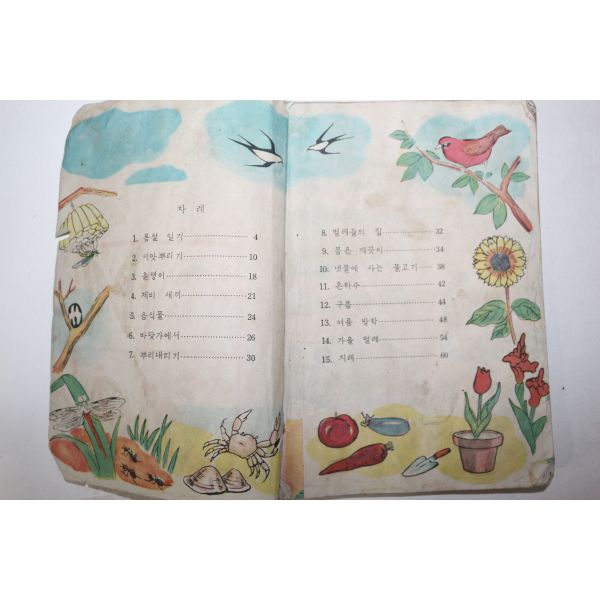 차 례
1. 봄철 일기 4
2. 씨앗뿌리기 10
3. 올챙이 18
4. 제비 새끼 21
5. 음식물 24
6. 바닷가에서 26
7. 뿌리내리기 30
8. 벌레들의 집 32
9. 몸은 깨끗이 34
10. 냇물에 사는 물고기 38
11. 은하수 42
12. 구름 44
13. 여름 방학 48
14. 가을 벌레 54
15. 지레 60